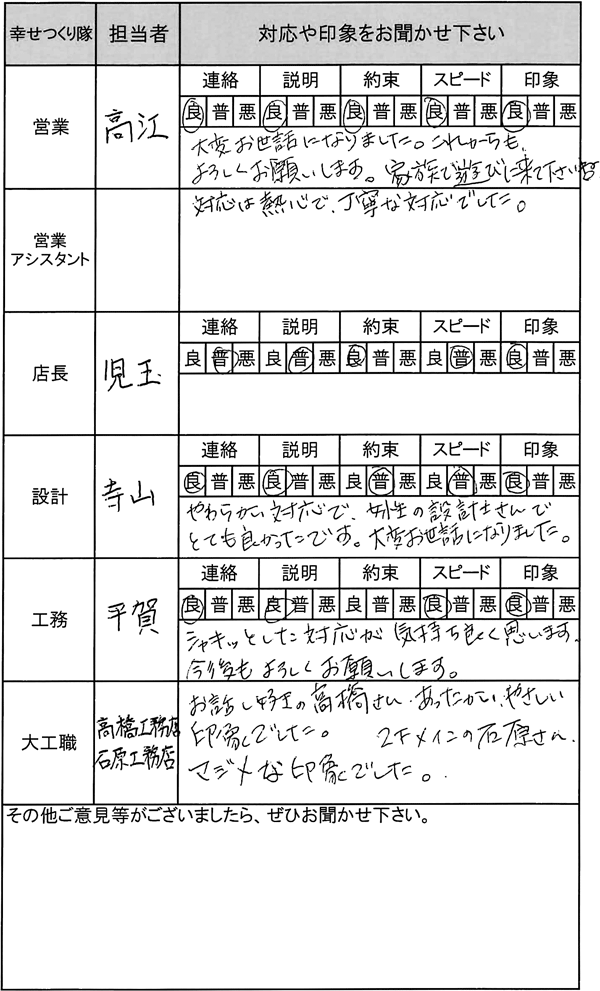 幸せつくり隊 担当者 対応や印象をお聞かせ下さい
営業 高江
連絡 説明 約束 スピード 印象
良 普 悪 良 普 悪 良 普 悪 良 普 悪 良 普 悪
大変お世話になりました。これからも、
よろしくお願いします。家族で遊びに来て下さい
対応は熱心で、丁寧な対応でした。
営業
アシスタント
店長 児玉
連絡 説明 約束 スピード 印象
良 普 悪 良 普 悪 良 普 悪 良 普 悪 良 普 悪
設計 寺山
連絡 説明 約束 スピード 印象
良 普 悪 良 普 悪 良 普 悪 良 普 悪 良 普 悪
やわらかい対応で、女性の設計士さんで
とても良かったです。大変お世話になりました。
工務 平賀
連絡 説明 約束 スピード 印象
良 普 悪 良 普 悪 良 普 悪 良 普 悪 良 普 悪
シャキッとした対応が気持ち良く思います。
今後もよろしくお願いします。
大工職 高橋工務店
石原工務店
お話し好きの高橋さん、あったかい、やさしい
印象でした。 2Fメインの石原さん、
マジメな印象でした。
その他ご意見等がございましたら、ぜひお聞かせ下さい。